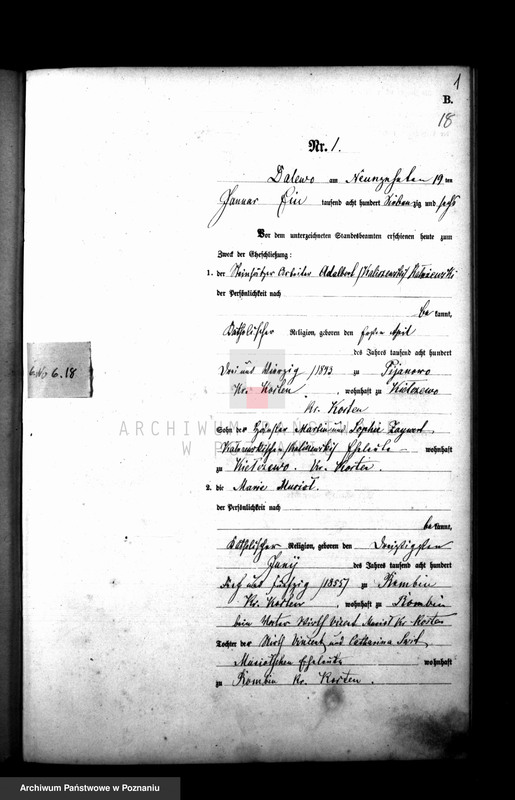 1
B.
18
Nr. 1.
Dalewo am Neunzehnten 19 ten
Januar Ein tausend acht hundert sieben zig und sechs
Vor dem unterzeichneten Standesbeamten erschienen heute zum
Zweck der Eheschließung:
1. der Arbeiter Adalbert
der Persönlichkeit nach
be kannt,
Katholischer Religion, geboren den ersten April
des Jahres tausend acht hundert
Drei und Vierzig /1843 zu Pijanowo
Kr. Kosten, wohnhaft zu Kielczewo
Kr. Kosten
Sohn der Martin und Sophie
Eheleute wohnhaft
zu Kielczewo. Kr. Kosten.
2. die Marie
der Persönlichkeit nach
be kannt,
Katholischer Religion, geboren den Dreißigsten
Junÿ des Jahres tausend acht hundert
Fünf und fünfzig /1855/ zu Rombin
Kr. Kosten, wohnhaft zu Rombin
beim Vater Wirth Vincent Kr. Kosten
Tochter der Wirth Vincent und Catharina
Eheleute wohnhaft
zu Rombin Kr. Kosten.
6.18
ARCHIWUM
W PO
Archiwum Państwowe w Poznaniu